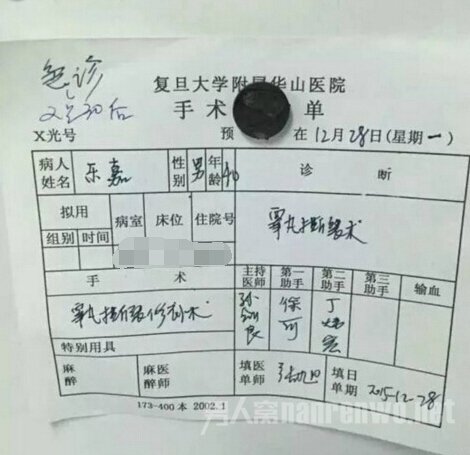 急诊
复旦大学附属华山医院
手术 单
X光号 预 在12月28日(星期一)
病人姓名 乐嘉 性别 男 年龄 40 诊断
拟用 病室 床位 住院号
组别 时间
睾丸 裂术
手术 主持医师 第一助手 第二助手 第三助手 输血
睾丸 裂修补术 孙 良 徐可 丁
特别用具
麻醉 麻醉师 填单医师 填单日期 2015-12-28
173-400本 2002.1
男人窝nanrenwo.net